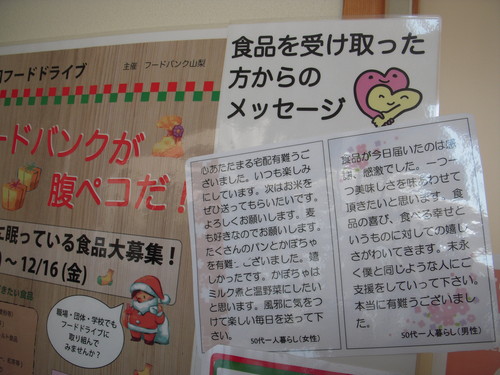 フードドライブ
主催 フードバンク山梨
ードバンクが
腹ペコだ!
に眠っている食品大募集!
~ 12/16(金)
職場・団体・学校でも
フードドライブに
取り組んで
みませんか?
食品を受け取った
方からの
メッセージ
心あたたまる宅配有難うご
ざいました。いつも楽しみ
にしています。次はお米を
ぜひ送ってもらいたいです。
よろしくお願いします。麦
も好きなのでお願いします。
たくさんのパンとかぼちゃ
を有難うございました。嬉
しかったです。かぼちゃは
ミルク煮と温野菜にしたい
と思います。風邪に気をつ
けて楽しい毎日を送って下
さい。
50代一人暮らし(女性)
食品が今日届いたのは
感激でした。一つ一
つ美味しさを味あわせて
頂きたいと思います。食
品の喜び、食べる幸せと
いうものに対しての嬉し
さがわいてきます。末永
く僕と同じような人にご
支援をしていって下さい。
本当に有難うございまし
た。
50代一人暮らし(男性)